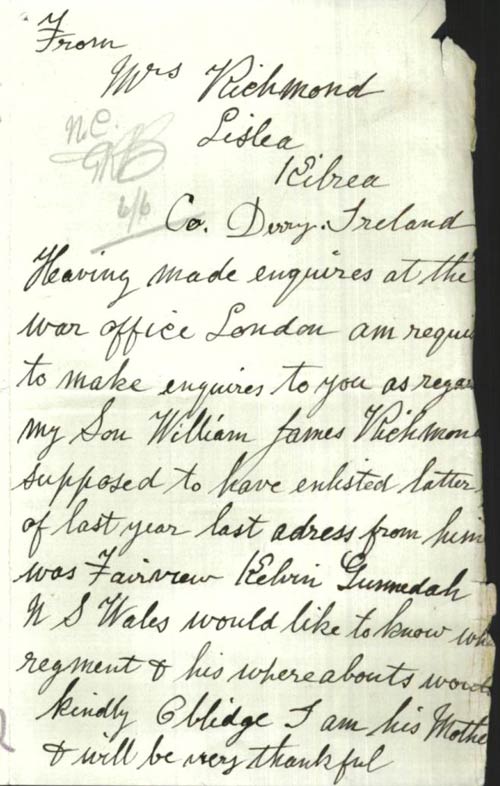 From
Mrs Richmond
Lislea
Kilrea
N.C.
6/6
Co. Derry. Ireland
Heaving made enquires at the
war office London am requi
to make enquires to you as regar
my Son William James Richmon
supposed to have enlisted latter
of last year last adress from him
was Fairview Kelvin Gunnedah
N S Wales would like to know wh
regment & his whereabouts would
kindly Oblidge I am his Mothe
& will be very thankful